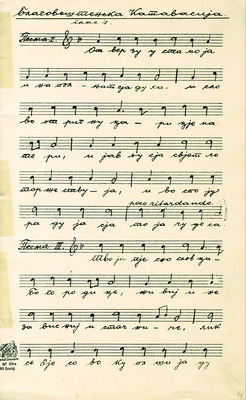 Благовештенска Катавасија.
глас 4.
Песма I.
От вер зу у ста мо ја
и на пол - њат сја ду ха, и сло
во от риг ну ца - ри цје ма
те ри, и јав љу сја свјет ло
тор же ству - ја, и во спо ју
poco ritardando.
ра ду ја сја то ја чу де са.
Песма III.
Тво ја пје сно слов ци -
бо го ро ди це, жи виј и не
за вист ниј и сточ ни - че, лик
се бје со во ку пл ши ја ду